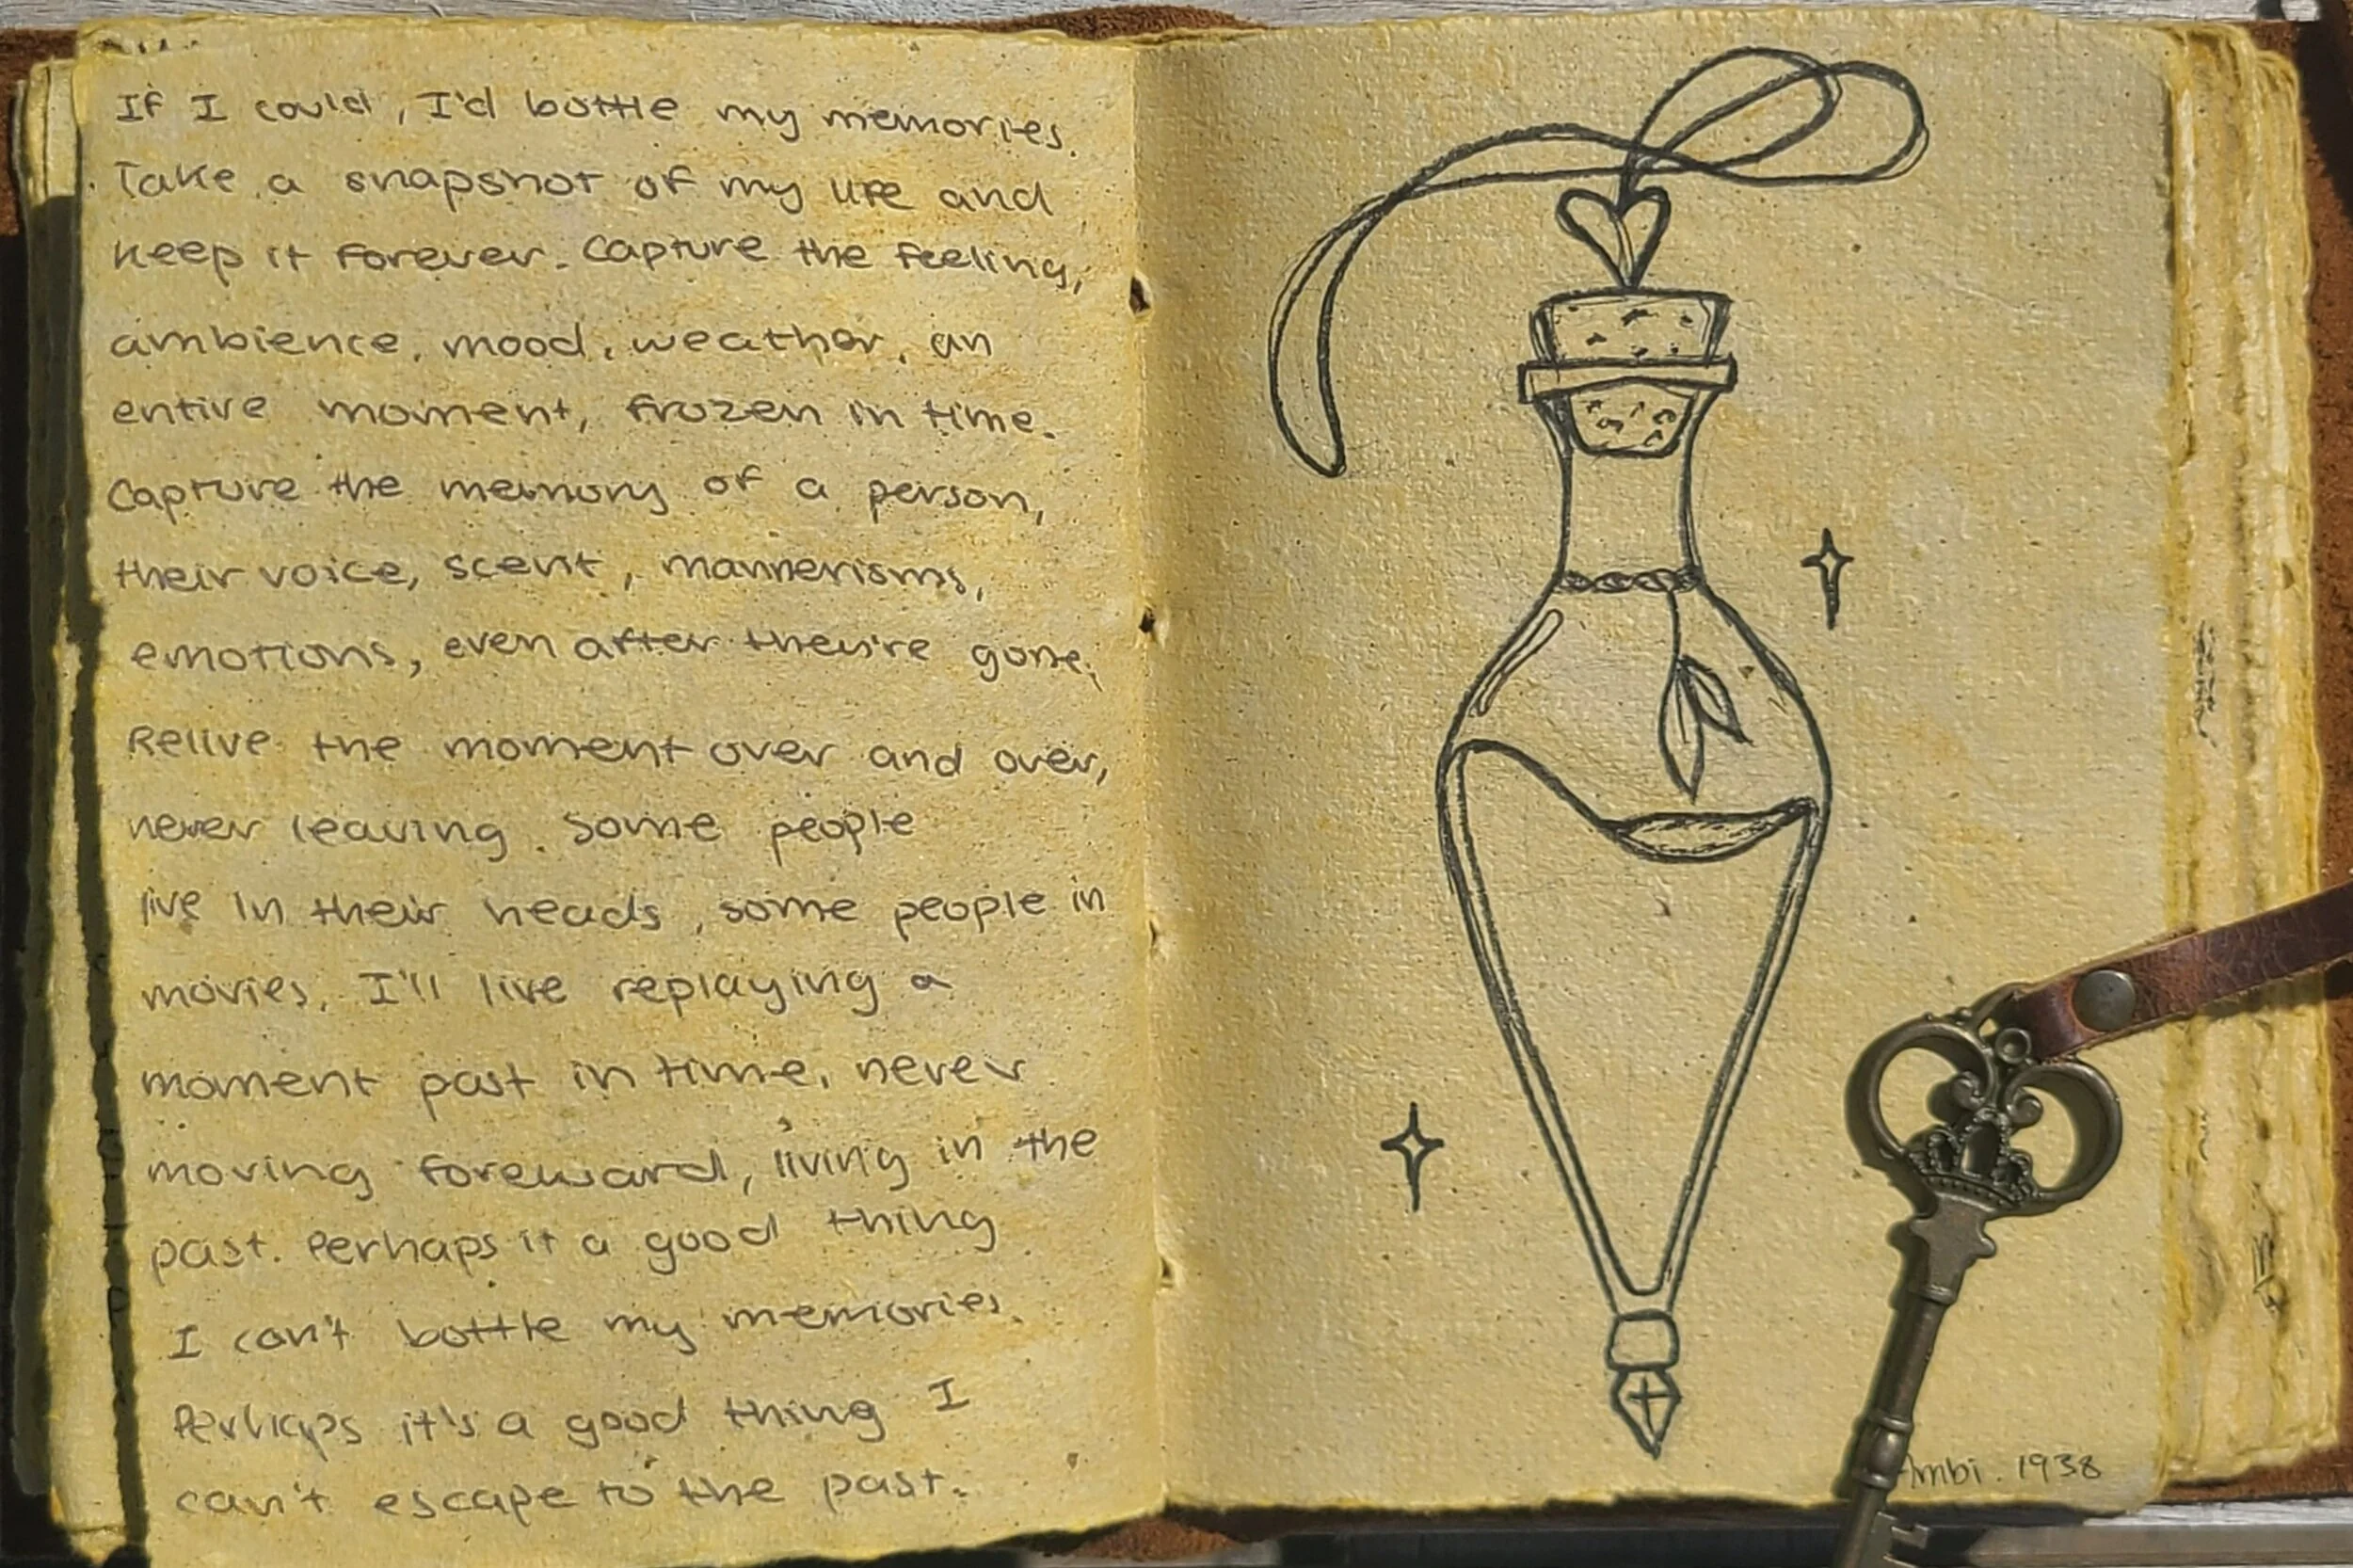 If I could, I'd bottle my memories.
Take a snapshot of my life and
keep it forever. Capture the feeling,
ambience, mood, weather, an
entire moment, frozen in time.
Capture the memory of a person,
their voice, scent, mannerisms,
emotions, even after they're gone,
Relive the moment over and over,
never leaving. Some people
live in their heads, some people in
movies, I'll live replaying a
moment past in time, never
moving foreward, living in the
past. Perhaps it a good thing
I can't bottle my memories.
Perhaps it's a good thing I
can't escape to the past.
Ambi. 1938